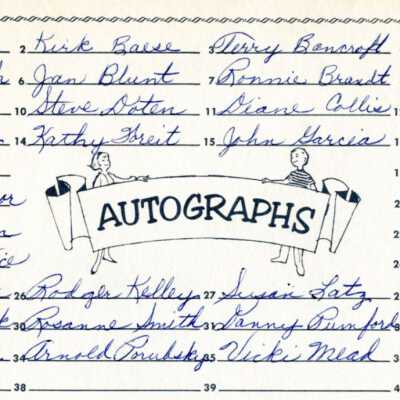 2 Kirk Baese 3 Terry Bancroft
6 Jan Blunt 7 Ronnie Brandt
10 Steve Doten 11 Diane Collis
14 Kathy Foreit 15 John Garcia
AUTOGRAPHS
26 Rodger Kelley 27 Susan Latz
30 Rosanne Smith 31 Danny Pumford
34 Arnold Porubsky 35 Vicki Mead
38 39